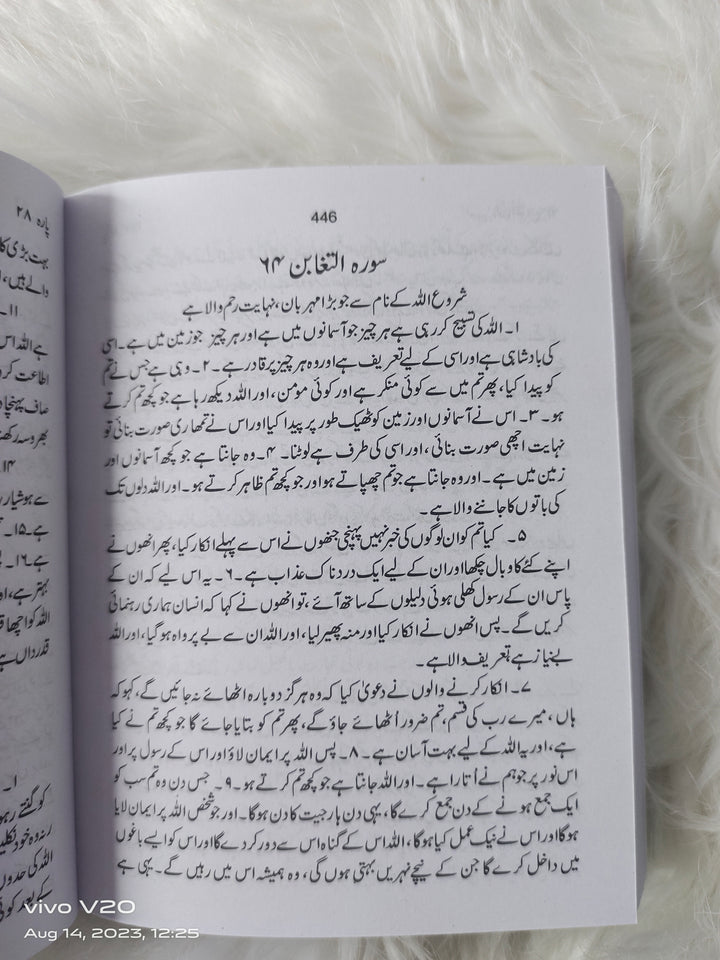 446
سورہ التغابن ۶۴
شروع اللہ کے نام سے جو بڑا مہربان، نہایت رحم والا ہے
۱۔ اللہ کی تسبیح کر رہی ہے ہر چیز جو آسمانوں میں ہے اور ہر چیز جو زمین میں ہے۔ اسی
کی بادشاہی ہے اور اسی کے لیے تعریف ہے اور وہ ہر چیز پر قادر ہے۔ ۲۔ وہی ہے جس نے تم
کو پیدا کیا، پھر تم میں سے کوئی منکر ہے اور کوئی مومن، اور اللہ دیکھ رہا ہے جو کچھ تم کرتے
ہو۔ ۳۔ اس نے آسمانوں اور زمین کو ٹھیک طور پر پیدا کیا اور اس نے تمھاری صورت بنائی تو
نہایت اچھی صورت بنائی، اور اسی کی طرف ہے لوٹنا۔ ۴۔ وہ جانتا ہے جو کچھ آسمانوں اور
زمین میں ہے۔ اور وہ جانتا ہے جو تم چھپاتے ہو اور جو کچھ تم ظاہر کرتے ہو۔ اور اللہ دلوں تک
کی باتوں کا جاننے والا ہے۔
۵۔ کیا تم کو ان لوگوں کی خبر نہیں پہنچی جنھوں نے اس سے پہلے انکار کیا، پھر انھوں نے
اپنے کئے کا وبال چکھا اور ان کے لیے ایک دردناک عذاب ہے۔ ۶۔ یہ اس لیے کہ ان کے
پاس ان کے رسول کھلی ہوئی دلیلوں کے ساتھ آئے، تو انھوں نے کہا کہ انسان ہماری رہنمائی
کریں گے۔ پس انھوں نے انکار کیا اور منہ پھیر لیا، اور اللہ ان سے بے پرواہ ہو گیا، اور اللہ
بے نیاز ہے تعریف والا ہے۔
۷۔ انکار کرنے والوں نے دعویٰ کیا کہ وہ ہرگز دوبارہ اٹھائے نہ جائیں گے، کہو کہ
ہاں، میرے رب کی قسم، تم ضرور اُٹھائے جاؤ گے، پھر تم کو بتایا جائے گا جو کچھ تم نے کیا
ہے، اور یہ اللہ کے لیے بہت آسان ہے۔ ۸۔ پس اللہ پر ایمان لاؤ اور اس کے رسول پر اور
اس نور پر جو ہم نے اُتارا ہے۔ اور اللہ جانتا ہے جو کچھ تم کرتے ہو۔ ۹۔ جس دن وہ تم سب کو
ایک جمع ہونے کے دن جمع کرے گا، یہی دن ہار جیت کا دن ہوگا۔ اور جو شخص اللہ پر ایمان لایا
ہوگا اور اس نے نیک عمل کیا ہوگا، اللہ اس کے گناہ اس سے دور کر دے گا اور اس کو ایسے باغوں
میں داخل کرے گا جن کے نیچے نہریں بہتی ہوں گی، وہ ہمیشہ اس میں رہیں گے۔ یہی ہے
پارہ ۲۸
بہت بڑی
والے ہیں،
۱۱۔
ہے اللہ
اطاعت
صاف پہنچا
بھروسہ
۱۴
سے ہوشیار
ہے۔ ۱۵۔
ہے۔ ۱۶۔
بہتر ہے،
اللہ کو اچھا
قدرداں ہے
۱۔
کو گنتے رہو
اللہ کی حدوں
کے بعد کوئی
vivo V20
Aug 14, 2023, 12:25